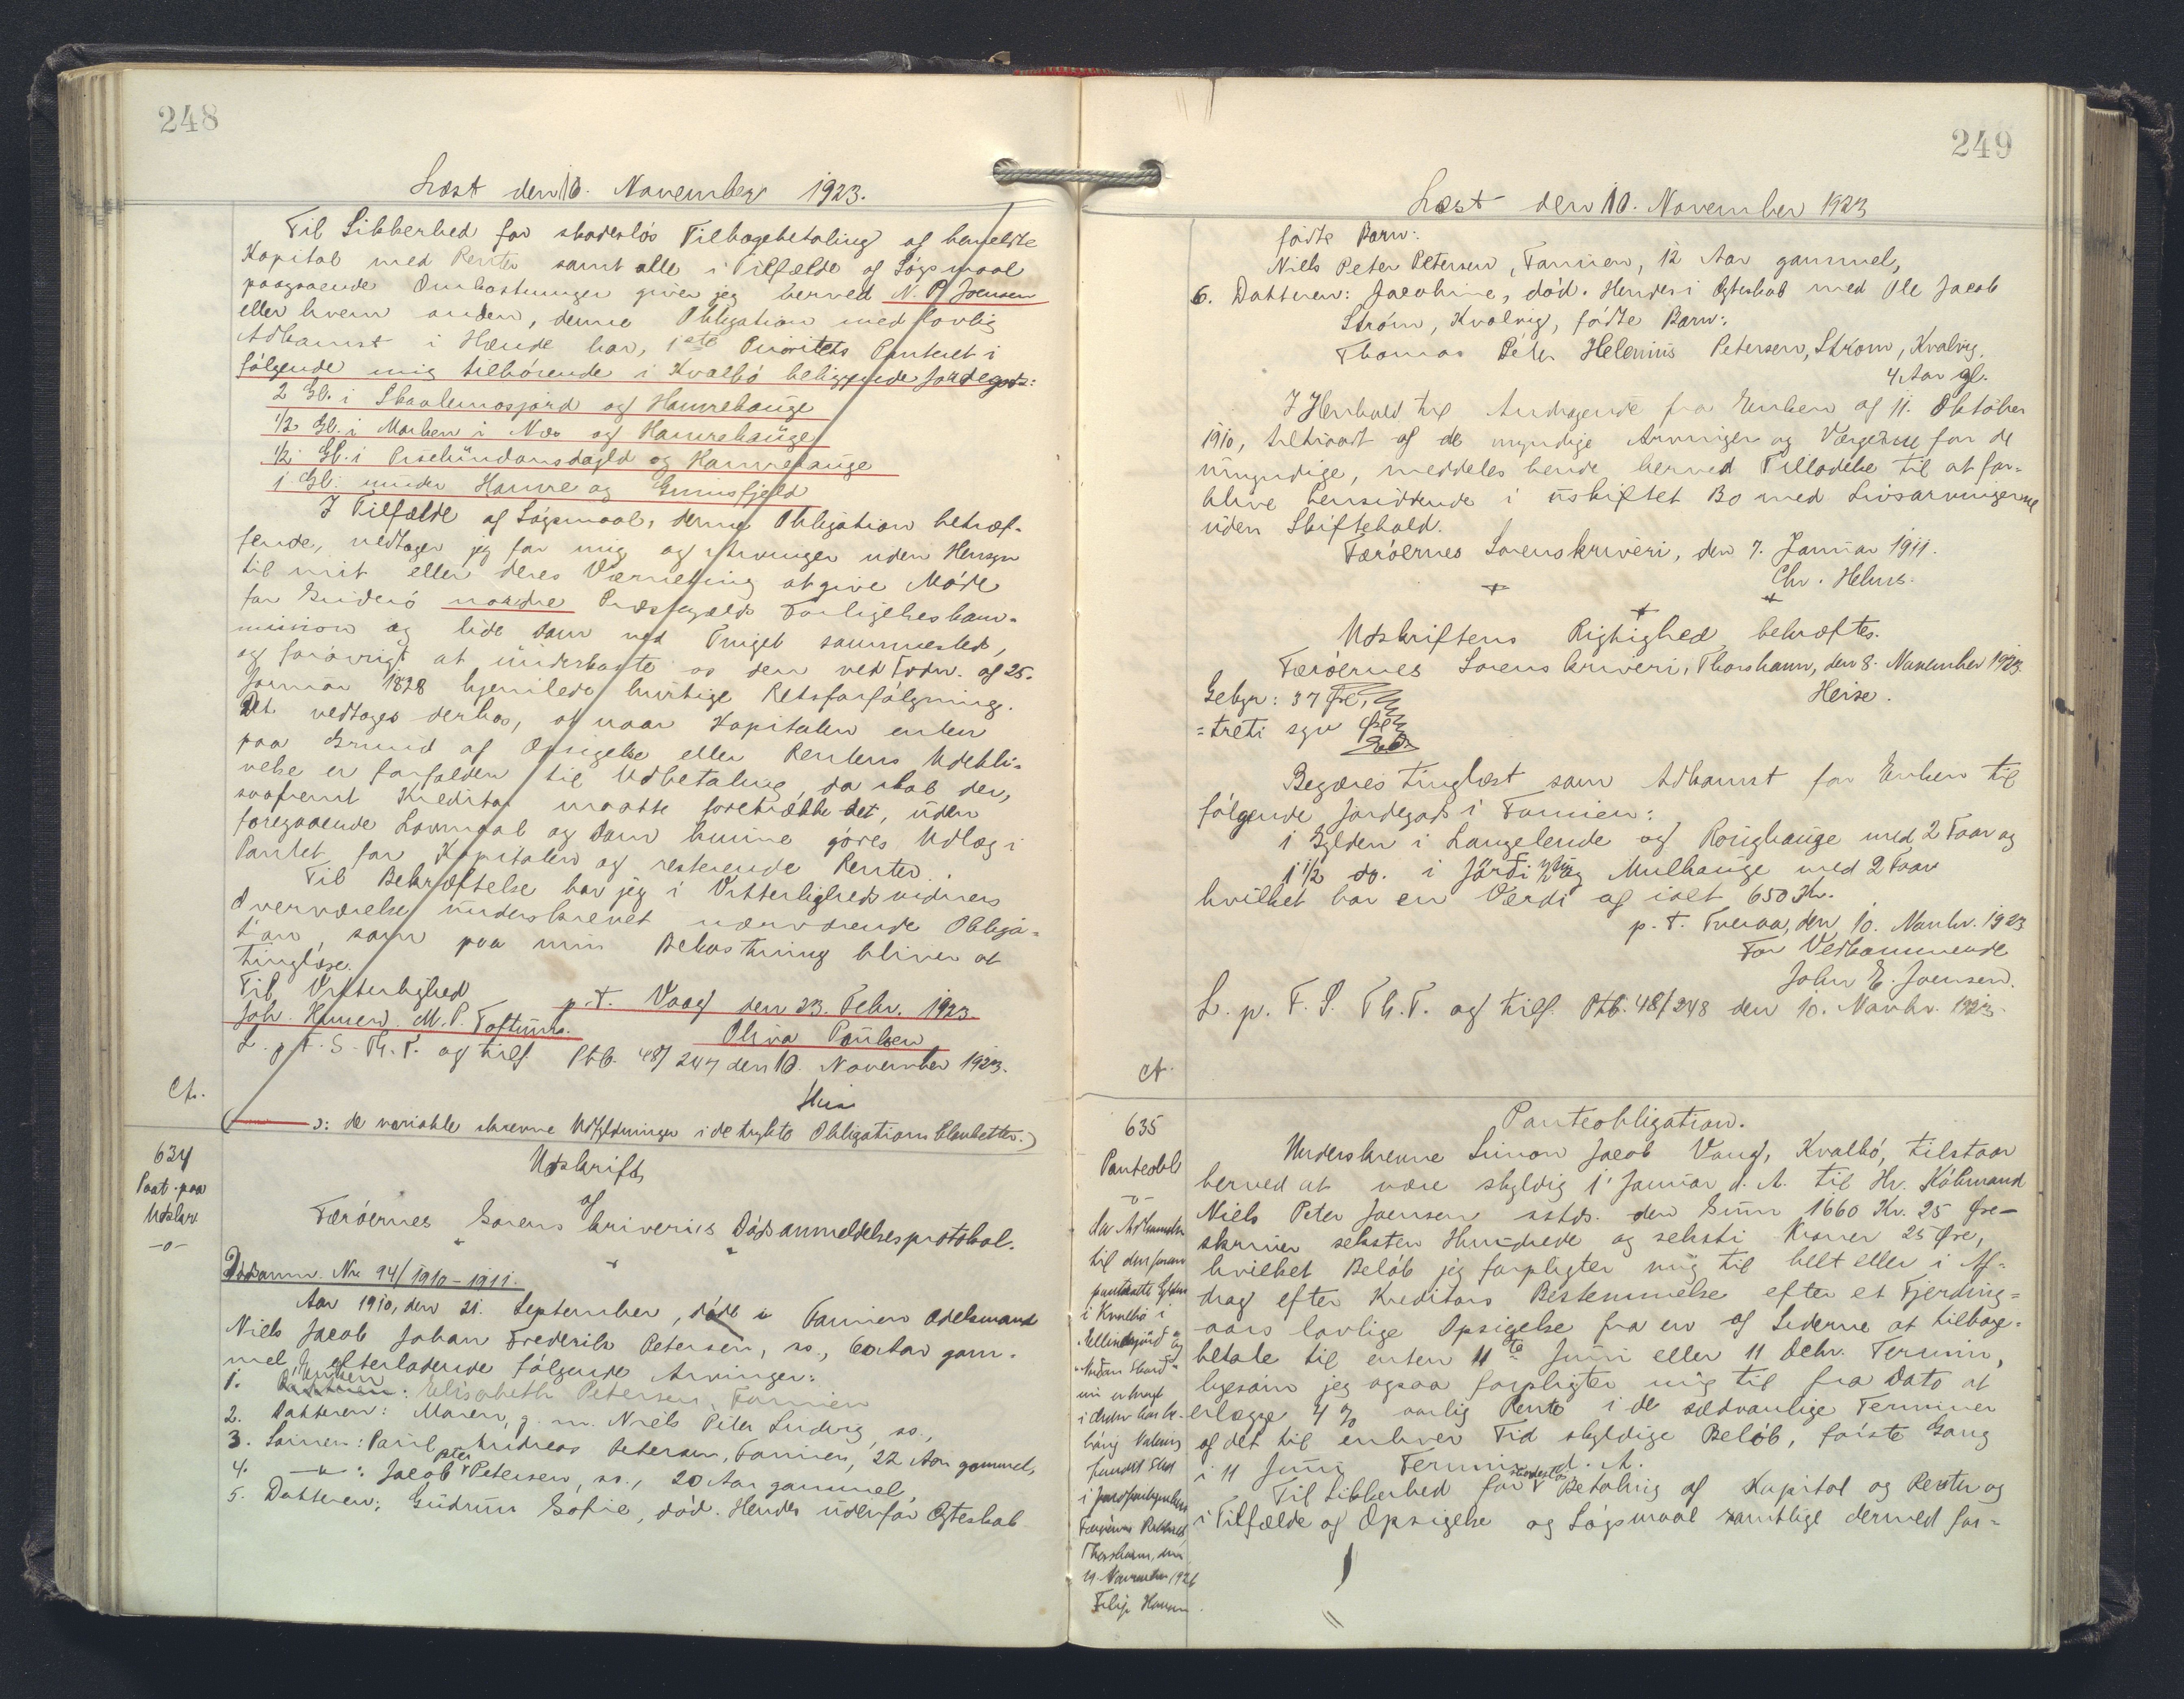 248
Læst den 10. November 1923.
Til Sikkerhed for skadesløs Tilbagebetaling af bemeldte
Kapital med Renter samt alle i Tilfælde af Søgsmaal
paagaaende Omkostninger giver jeg herved N. P. Joensen
eller hvem anden, denne Obligation med lovlig
Adkomst i Hænde har, 1ste Prioritets Panteret i
følgende mig tilhørende i Kvalbø beliggende Jordegods:
2 Gl. i Skaalemosjord og Hamrehauge
1/2 Gl. i Marken i Næs og Hamrehauge
1/2 Gl. i og Hamrehauge
1 Gl. under Hamre og Grimsfjeld
I Tilfælde af Søgsmaal, denne Obligation betræf-
fende, vedtager jeg for mig og Arvinger uden Hensyn
til mit eller deres Værneting at give Møde
for Suderø nordre Præstegælds Forligelseskom-
mission og lide Dom ved Tinget sammesteds,
og forøvrigt at underkaste os den ved Frdn. af 25.
Januar 1828 hjemlede hurtige Retsforfølgning.
Det vedtages derhos, at naar Kapitalen enten
paa Grund af Opsigelse eller Rentens Udebli-
velse er forfalden til Udbetaling, da skal der,
saafremt Kreditor maatte foretrække det, uden
foregaaende Lovmaal og Dom kunne gøres Udlæg i
Pantet for Kapitalen og resterende Renter.
Til Bekræftelse har jeg i Vitterlighedsvidners
Overværelse underskrevet nærværende Obliga-
tion, som paa min Bekostning bliver at
tinglæse.
Til Vitterlighed
p.t. Vaag den 23. Febr. 1923.
Joh. M. P. Toftum.
Oliva Poulsen
L. p. F. S. Th. T. og tilf. Ptb. 48/247 den 10. November 1923.
Heise
Ct.
( ɔ: de variable skrevne Udfyldninger i de trykte Obligations Blanketter.)
634
Paat. paa
Udskr.
-o-
Udskrift
af
Færøernes Sorenskriveries Dødsanmeldelsesprotokol.
Dødsanm. Nr. 94/1910-1911.
Aar 1910, den 21. September, døde i Famien Odelsmand
Niels Jacob Johan Frederik Petersen, ss., 60 Aar gam-
mel, efterladende følgende Arvinger:
1. Enken: Elisabeth Petersen, Famien
2. Datteren: Maren, g. m. Niels Peter Ludvig, ss.,
3. Sønnen: Paul Andreas Petersen, Famien, 22 Aar gammel,
4. —"—: Jacob Peter Petersen, ss., 20 Aar gammel,
5. Datteren: Gudrun Sofie, død. Hendes udenfor Ægteskab
249
Læst den 10. November 1923
fødte Barn:
Niels Peter Petersen, Famien, 12 Aar gammel,
6. Datteren: Jacobine, død. Hendes i Ægteskab med Ole Jacob
Strøm, Kvalvig, fødte Barn:
Thomas Peter Helenius Petersen, Strøm, Kvalvig,
4 Aar gl.
I Henhold til Andragende fra Enken af 11. Oktober
1910, tiltraadt af de myndige Arvinger og Værgerne for de
umyndige, meddeles hende herved Tilladelse til at for-
blive hensiddende i uskiftet Bo med Livsarvingerne
uden Skiftehold.
Færøernes Sorenskriveri, den 7. Januar 1911.
Chr. Helms.
Udskriftens Rigtighed bekræftes.
Færøernes Sorenskriveri, Thorshavn, den 8. November 1923.
Heise.
Gebyr: 37 Øre,
= treti syv Øre
Begæres tinglæst som Adkomst for Enken til
følgende Jordegods i Famien:
1 Gylden i Langelende og Rossghauge med 2 Faar og
1 1/2 do. i og Mulhauge med 2 Faar
hvilket har en Værdi af ialt 650 Kr.
p. t. Tveraa, den 10. Novbr. 1923
For Vedkommende
John E. Joensen.
L. p. F. S. Th. T. og tilf. Ptb. 48/248 den 10. Novbr. 1923.
Ct.
635
Panteobl
-o-
da Adkomsten
til den foran
pantsatte Gylden
i Kvalbø i
og
i
funder Sted
Færøernes
Thorshavn, den
Novembr 1926
Filip Hansen
Panteobligation.
Underskrevne Simon Jacob Vang, Kvalbø, tilstaar
herved at være skyldig 1' Januar d. A. til Hr. Købmand
Niels Peter Joensen sstds. den Sum 1660 Kr. 25 Øre—
skriver seksten Hundrede og seksti Kroner 25 Øre,
hvilket Beløb jeg forpligter mig til helt eller i Af-
drag efter Kreditors Bestemmelse efter et Fjerding-
aars lovlige Opsigelse fra en af Siderne at tilbage-
betale til enten 11te Juni eller 11 Decbr. Termin,
ligesom jeg ogsaa forpligter mig til fra Dato at
erlægge 4% aarlig Rente i de sædvanlige Terminer
af det til enhver Tid skyldige Beløb, første Gang
i 11 Juni Termin d. A.
Til Sikkerhed for skadesløs Betaling af Kapital og Renter og
i Tilfælde af Opsigelse og Søgsmaal samtlige dermed for-